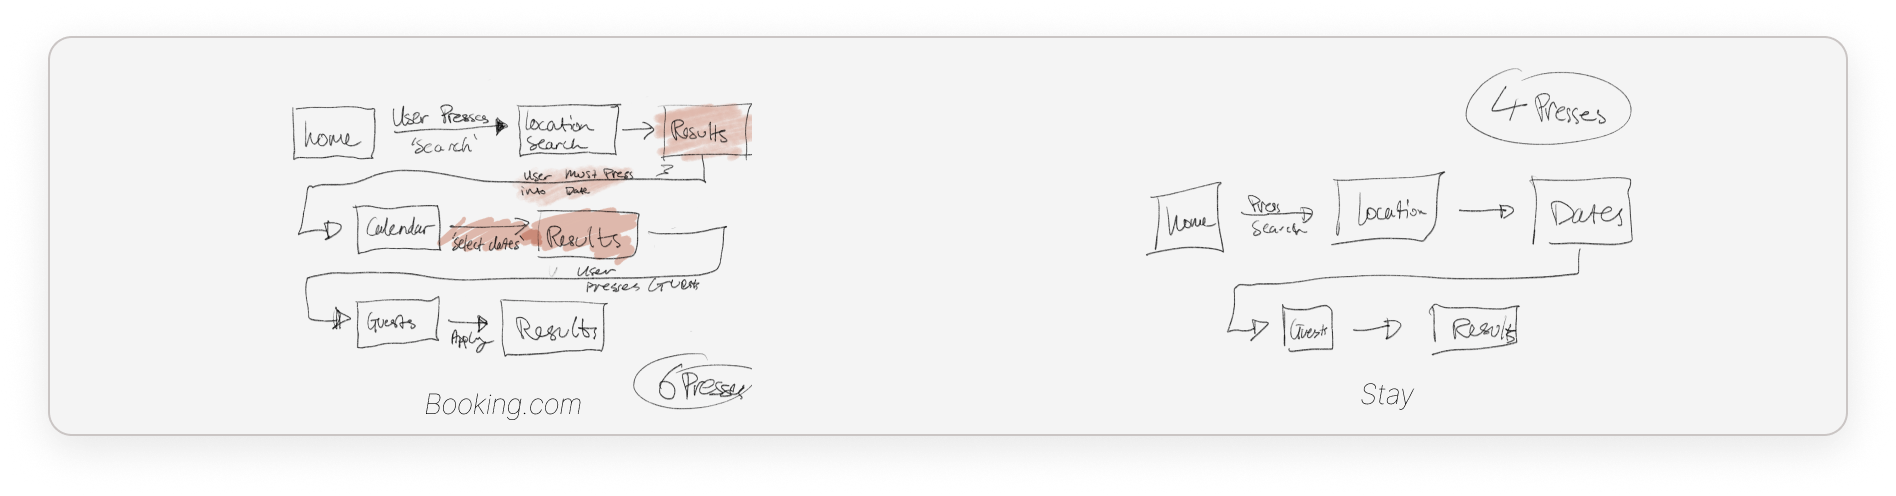 home
User Presses
'Search'
Location
Search
Results
User Must Press
into Date
Calendar
'select dates'
Results
User
Presses Guests
Guests
Apply
Results
6 Presses
Booking.com
4 Presses
home
Press
Search
Location
Dates
Guests
Results
Stay